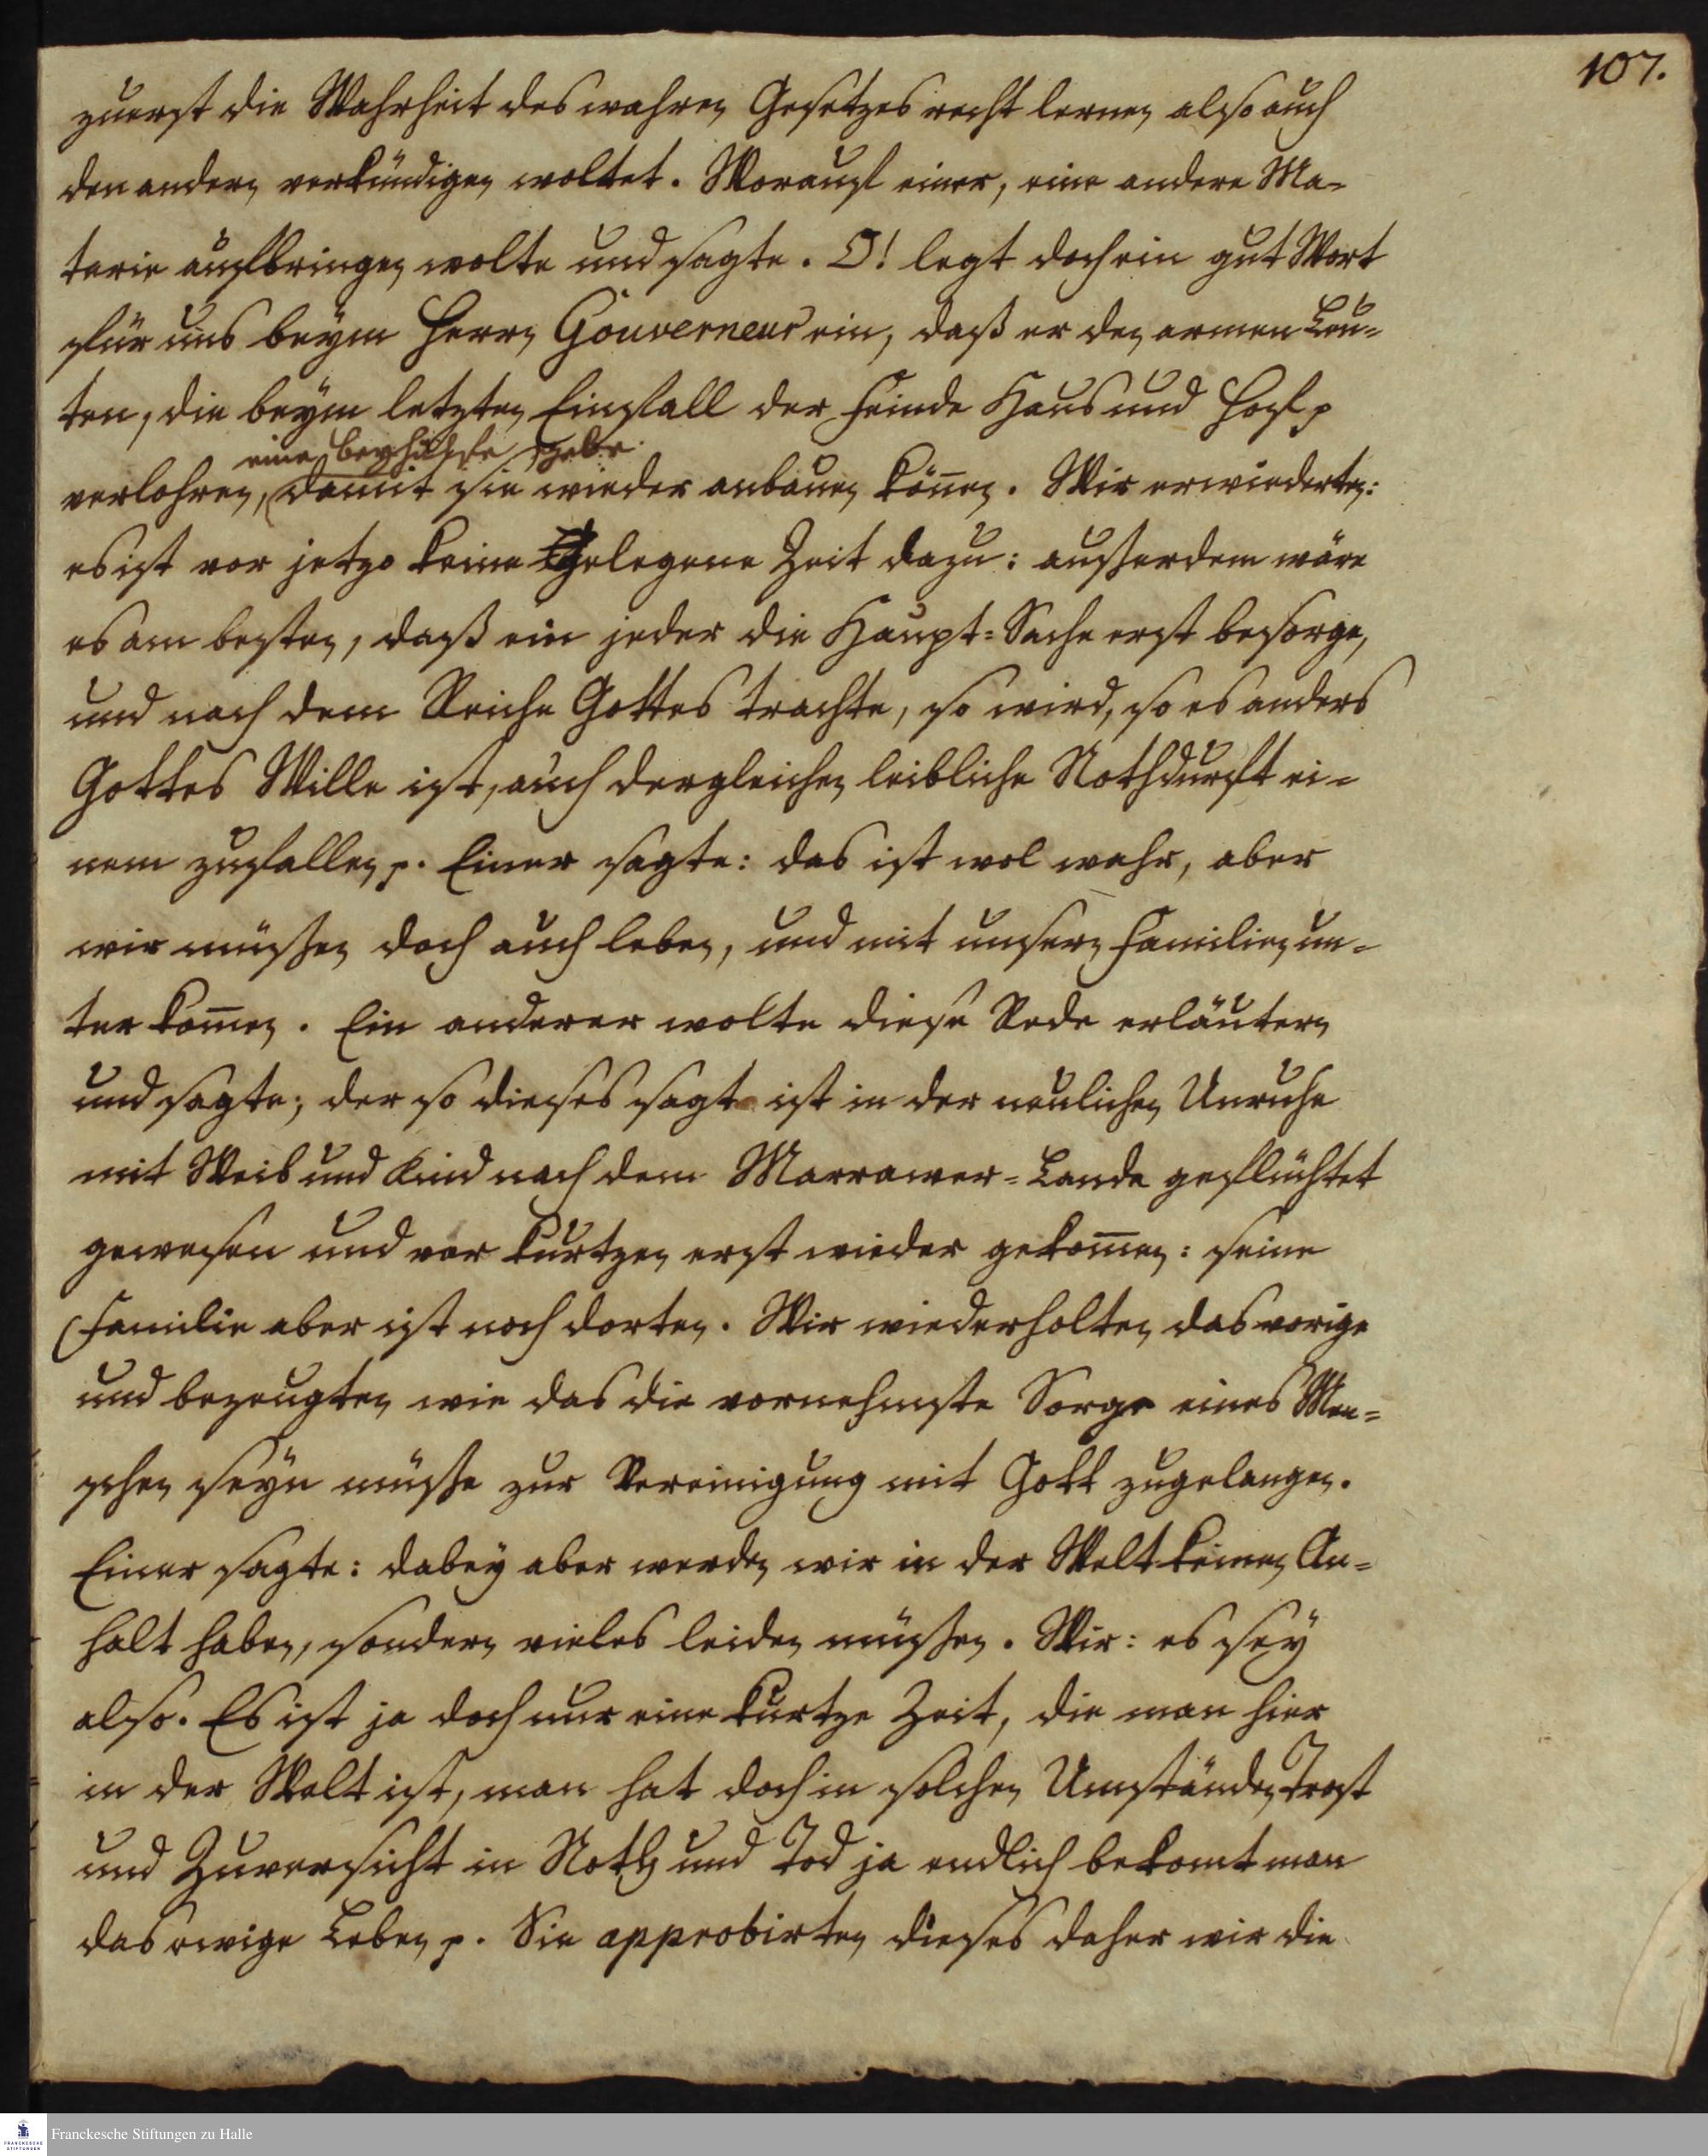 107.
zuerst die Wahrheit des wahren Gesetzes recht lernen also auch
den andern verkündigen woltet. Worauf einer, eine andere Ma-
terie aufbringen wolte und sagte. O! legt doch ein gut Wort
für uns beym Herrn Gouverneur ein, daß er den armen Leu-
ten, die beym letzten Einfall der Feinde Haus und Hof p
eine Beyhülfe gebe
verlohren, damit sie wieder anbauen kön̄en. Wir erwiederten:
es ist vor jetzo keine gelegene Zeit dazu: ausserdem wäre
es am besten, daß ein jeder die Haupt-Sache erst besorge,
und nach dem Reiche Gottes trachte, so wird, so es anders
Gottes Wille ist, auch dergleichen leibliche Nothdurft ei-
nem zufallen p. Einer sagte: das ist wol wahr, aber
wir müssen doch auch leben, und mit unsern Familien un-
ter kom̄en. Ein anderer wolte diese Rede erläutern
und sagte; der so dieses sagt ist in der neulichen Unruhe
mit Weib und Kind nach dem Marrawer-Lande geflüchtet
gewesen und vor kurtzen erst wieder gekom̄en: seine
Familie aber ist noch dorten. Wir wiederholten das vorige
und bezeugten wie das die vornehmste Sorge eines Men-
schen seyn müsse zur Vereinigung mit Gott zugelangen.
Einer sagte: dabey aber werden wir in der Welt keinen An-
halt haben, sondern vieles leiden müssen. Wir: es sey
also. Es ist ja doch nur eine kurtze Zeit, die man hier
in der Welt ist, man hat doch in solchen Umständen Trost
und Zuversicht in Noth und Tod ja endlich bekomt man
das ewige Leben p. Sie approbirten dieses daher wir die
Franckesche Stiftungen zu Halle